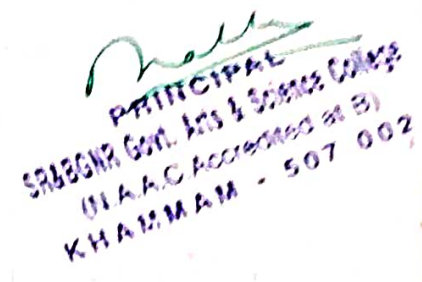 PRINCIPAL
SR&BGNR Govt. Arts & Science College
(N.A.A.C. Accredited at B)
KHAMMAM - 507 002